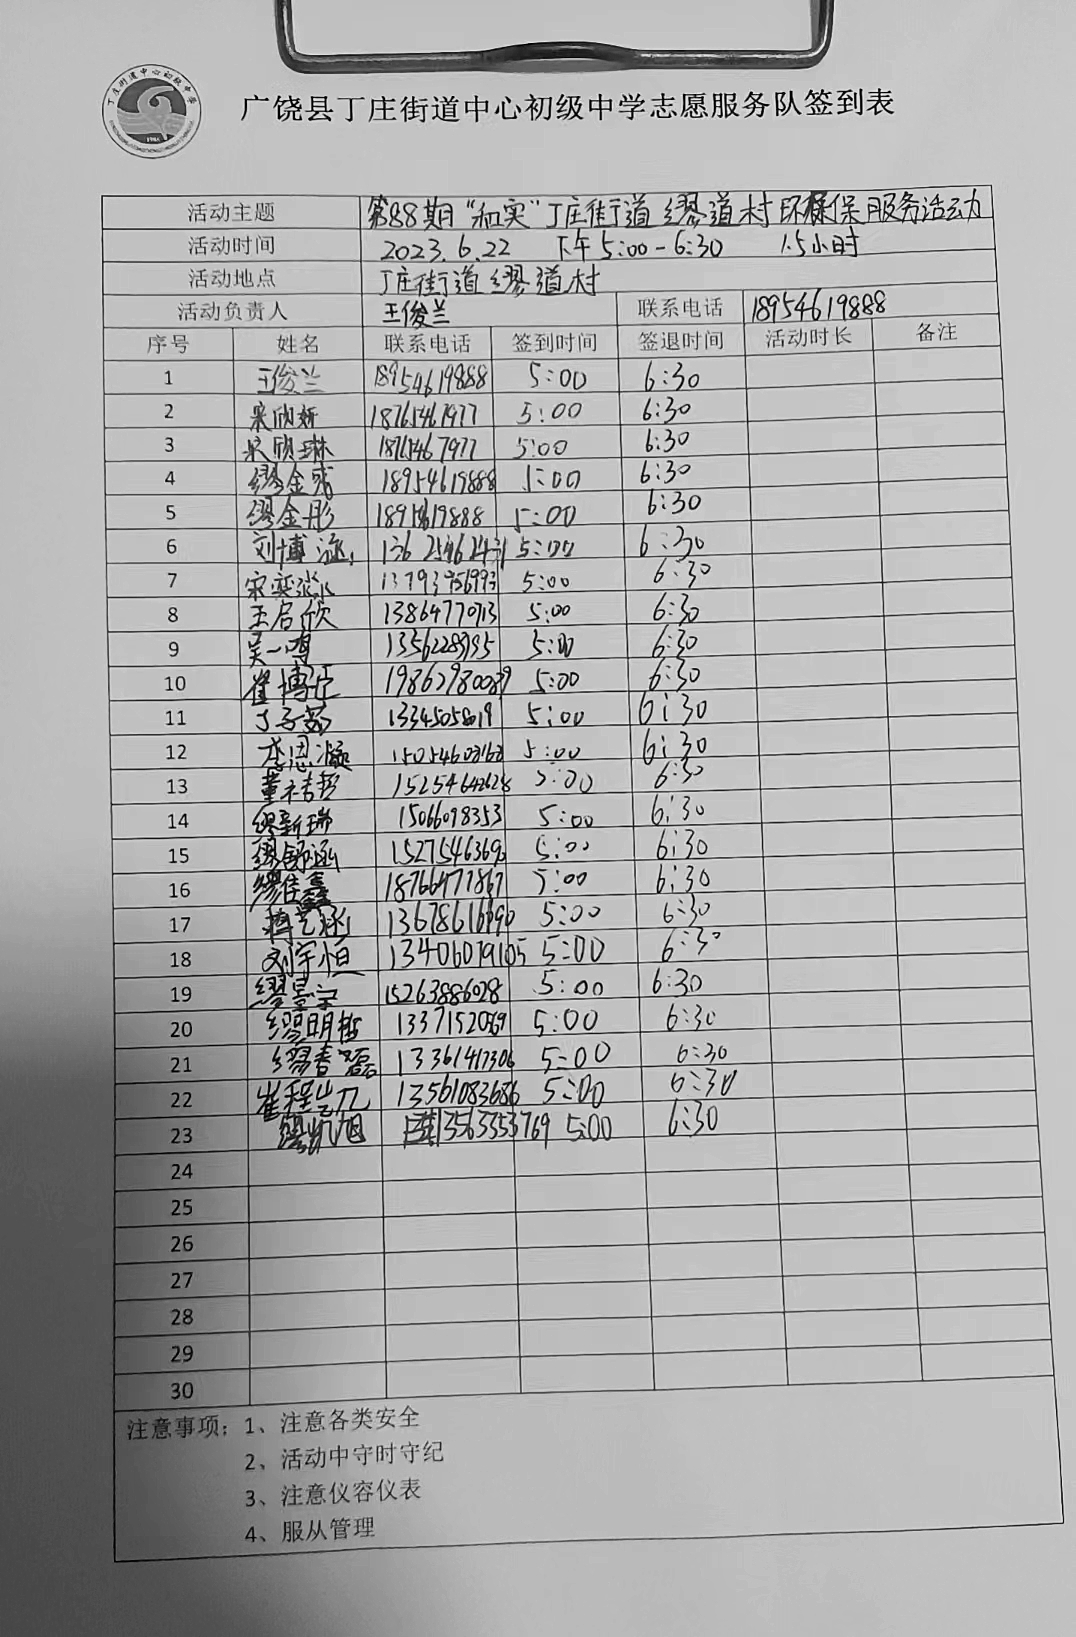 广饶县丁庄街道中心初级中学志愿服务队签到表
活动主题 第88期“和实”丁庄街道缪道村环保服务活动
活动时间 2023.6.22 下午5:00-6:30 1.5小时
活动地点 丁庄街道缪道村
活动负责人 王俊兰 联系电话 18954619888
序号 姓名 联系电话 签到时间 签退时间 活动时长 备注
1 王俊兰 18954619888 5:00 6:30
2 宋欣妍 5:00 6:30
3 宋欣琳 5:00 6:30
4 缪金 18954619888 5:00 6:30
5 缪金彤 5:00 6:30
6 刘博涵 5:00 6:30
7 宋奕 5:00 6:30
8 王启欣 13864770713 5:00 6:30
9 吴一鸣 5:00 6:30
10 崔博臣 5:00 6:30
11 丁子茹 5:00 6:30
12 李思凝 5:00 6:30
13 董 15254642628 5:00 6:30
14 缪新瑞 15066098353 5:00 6:30
15 缪舒涵 5:00 6:30
16 缪佳鑫 18766477867 5:00 6:30
17 5:00 6:30
18 刘宇恒 13406079105 5:00 6:30
19 缪景宇 15263886028 5:00 6:30
20 缪明哲 5:00 6:30
21 缪春磊 13361417306 5:00 6:30
22 崔程 13561083686 5:00 6:30
23 缪凯旭 13563353769 5:00 6:30
24
25
26
27
28
29
30
注意事项：1、注意各类安全
2、活动中守时守纪
3、注意仪容仪表
4、服从管理